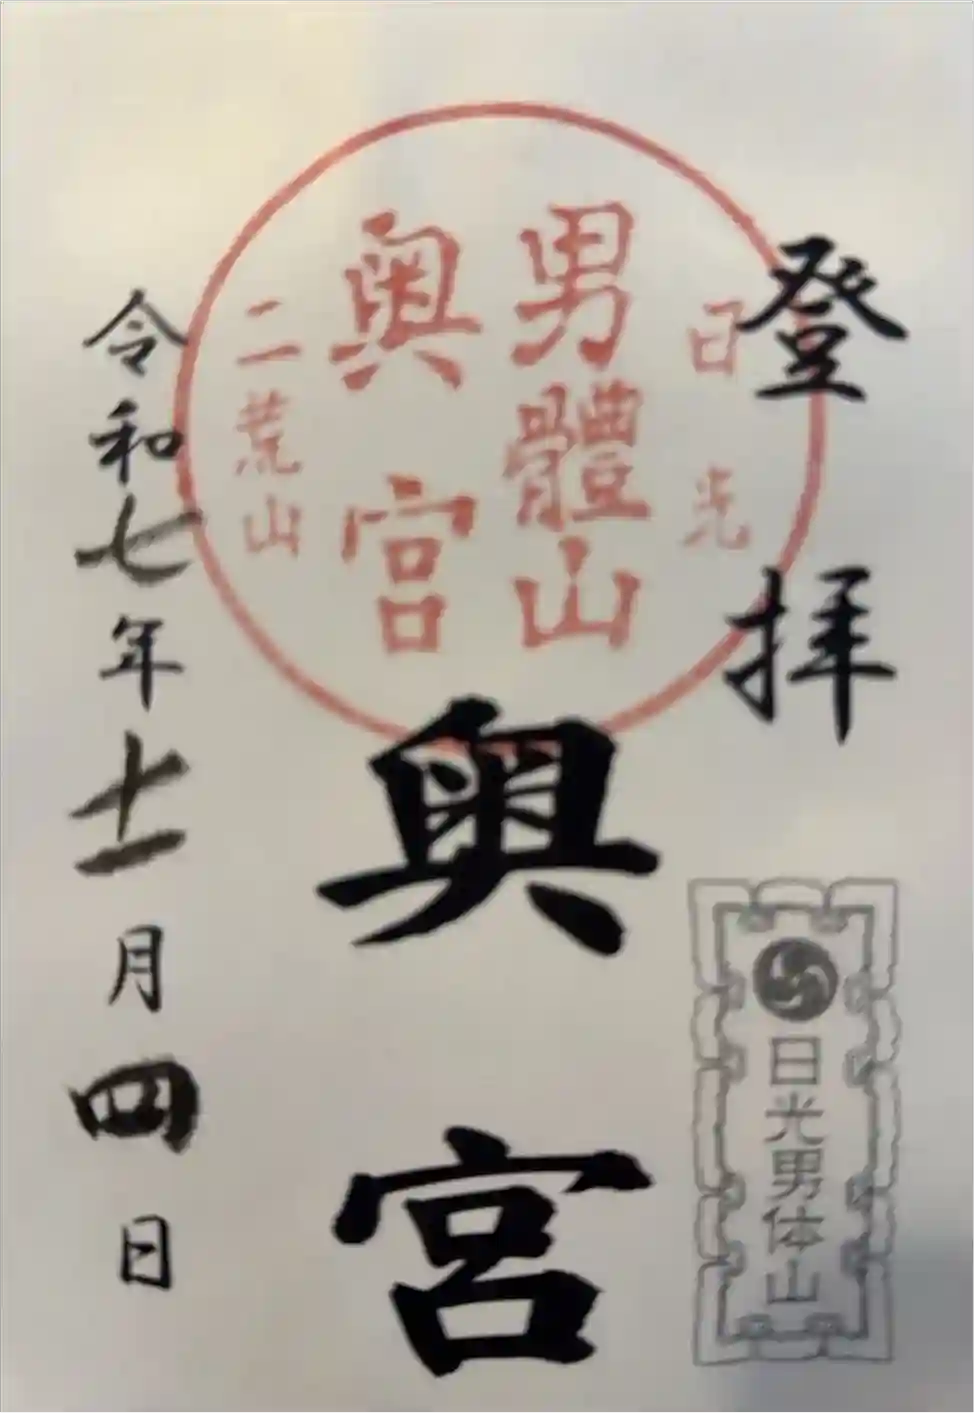 登拝
日光
男體山
奥宮
二荒山
奥宮
日光男体山
令和七年十一月四日